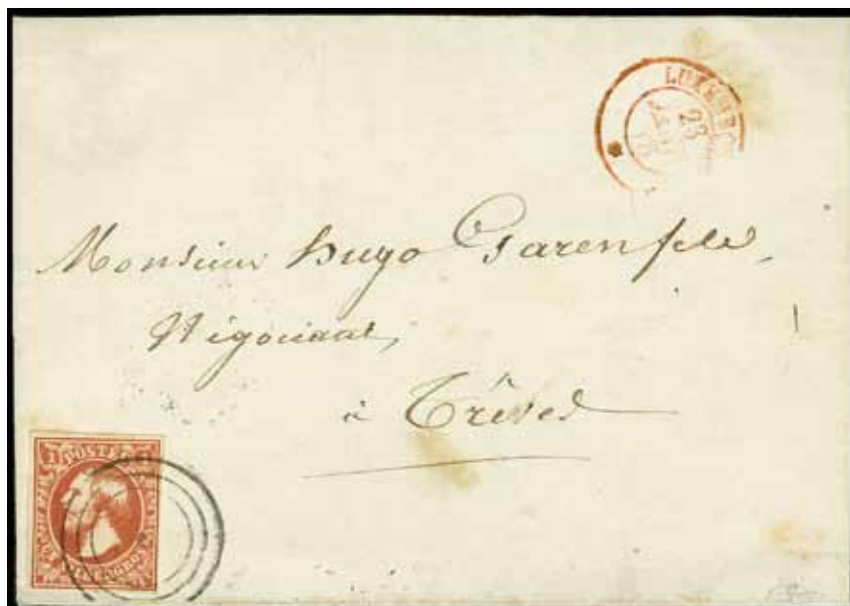 LUXEMBO
23
Monsieur Hugo Garenfeld,
Négociant,
à Trèves
1 POSTES
SILBERGROS